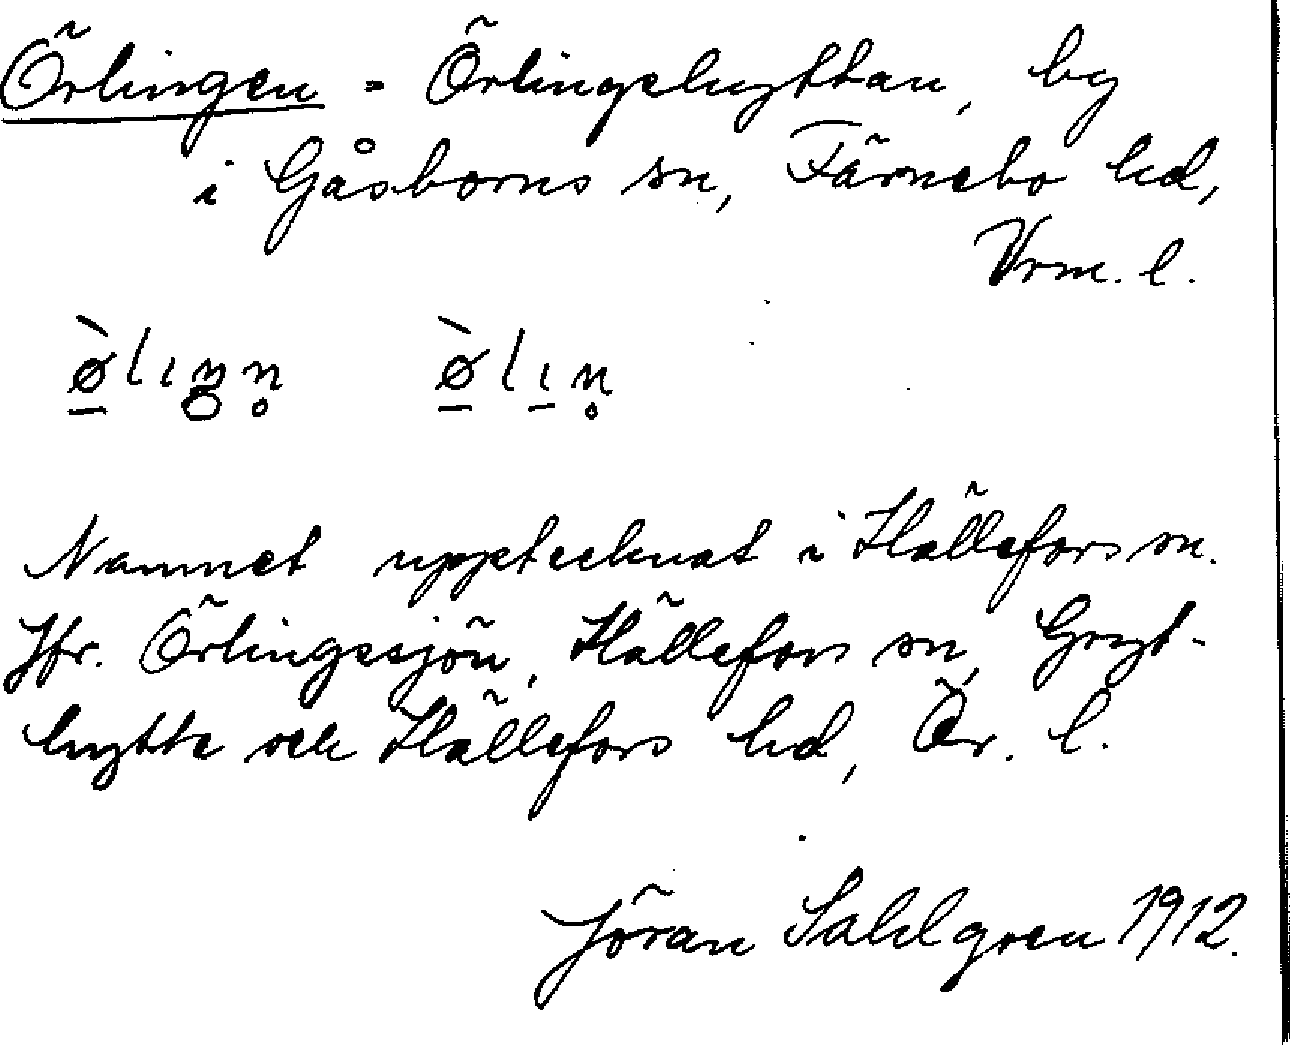 Örlingen = Örlingshyttan, by
i Gåsborns sn, Färnebo hd,
Vrm. l.
Namnet upptecknat i Hällefors sn.
Jfr. Örlingssjön, Hällefors sn, Gryt-
hytte och Hällefors hd, Ör. l.
Jöran Sahlgren 1912.